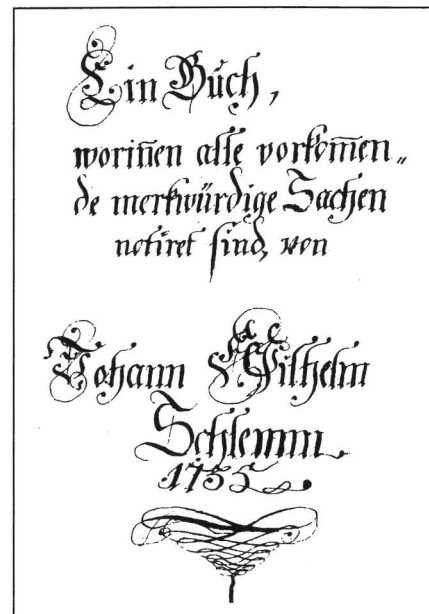 Ein Büch,
worin̄en alle vorkom̄en„
de merkwürdige Sachen
notiret sind, von
Johann Wilhelm
Schlemm.
1735